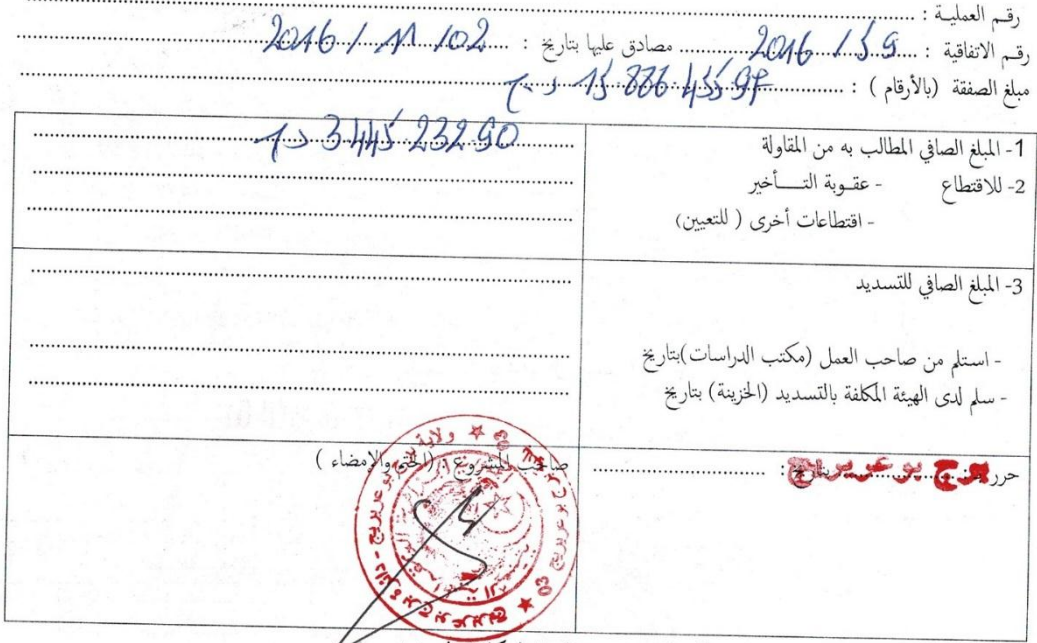 رقم العملية : ........................
رقم الاتفاقية : 2016 / 59 مصادق عليها بتاريخ : 2016 / 11 / 02
مبلغ الصفقة (بالأرقام ) : 15 886 455 97 د ج
1- المبلغ الصافي المطالب به من المقاولة 3 445 232.90 د ج
2- للاقتطاع - عقوبة التـــأخير
- اقتطاعات أخرى ( للتعيين)
3- المبلغ الصافي للتسديد
- استلم من صاحب العمل (مكتب الدراسات )بتاريخ
- سلم لدى الهيئة المكلفة بالتسديد (الخزينة) بتاريخ
حرر برج بوعريريج بتاريخ : صاحب المشروع : (الختم والإمضاء )